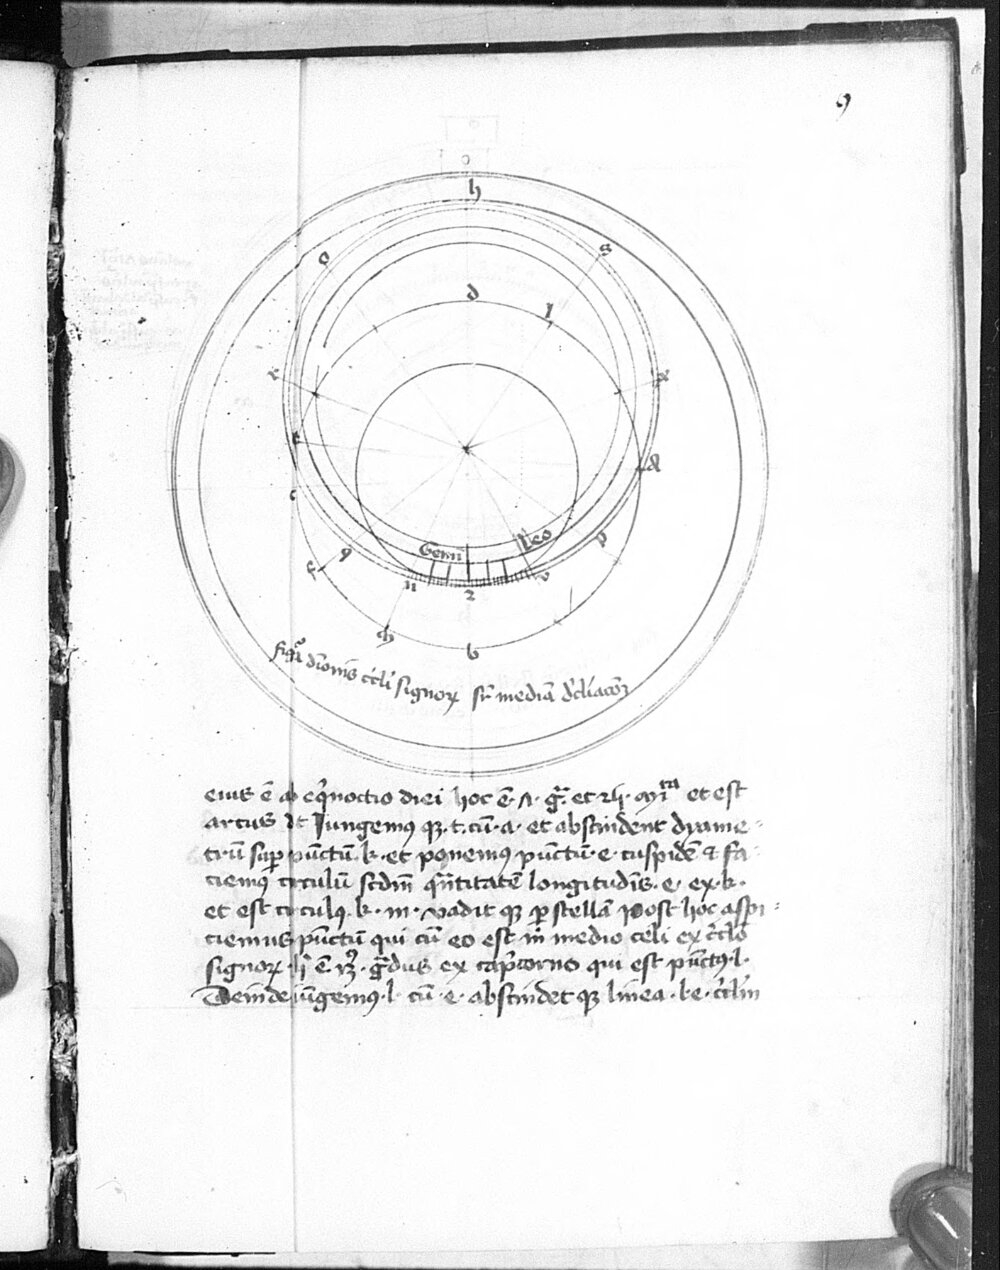 9
o
h
o
s
d
l
z
x
t
a
c
Gemi
Leo
q
p
f
n
z
v
m
b
figᵃ diuionis circli signoꝝ sᵈm mediā dcliacōꝫ
eius ē ab eqͥnoctio diei hoc ē · et est
arcus dt Iungemꝰ qꝫ · t · cū · a · et abscindent dyame-
trū suꝑ pūctū · k · et ponemꝰ pūctū · e · cuspidē ⁊ fa-
ciemꝰ circulū scdm̄ qͣntitatē longitudīs · e · ex · k ·
et est circulꝰ · k · m · vadit qꝫ ꝑ stellā post hoc aspi-
ciemus pūctū qui cū eo est in medio celi ex circlo
signoꝝ · ē · gͣdus ex capͥcorno qui est pūctꝰ · l ·
Deinde iūgemꝰ · l · cū · e · abscindet qꝫ linea · l · e · circlm